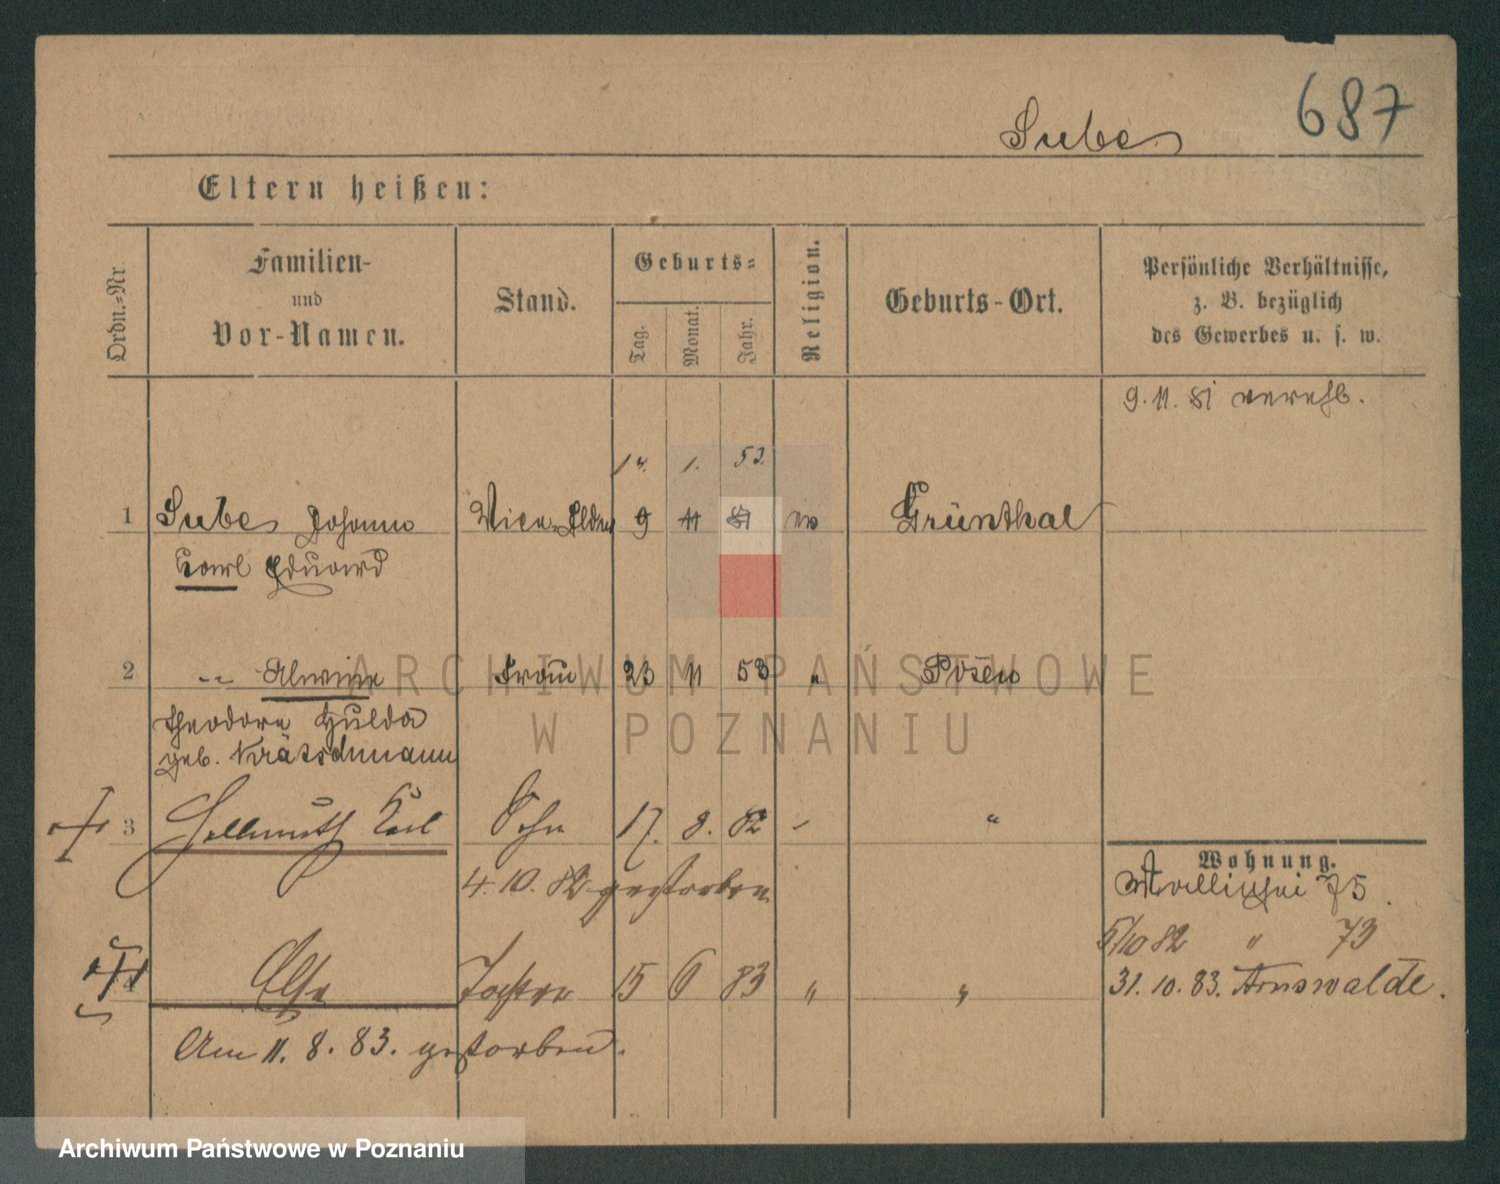 687
Sube
Eltern heißen:
Ordn.=Nr.
Familien-
und
Vor-Namen.
Stand.
Geburts=
Tag.
Monat.
Jahr.
Religion.
Geburts-Ort.
Persönliche Verhältnisse,
z. B. bezüglich
des Gewerbes u. s. w.
9. 11. 81 verehl.
14. 1. 53.
1 Sube Johann Vice- 9 11 81 ev Grünthal
Karl Eduard
2 -"- Alwine Frau 23 11 53 " Posen
Theodore Hulda
geb. Krätschmann
3 Hellmuth Karl Sohn 17. 8. 82 "
4. 10. 82 gestorben
Wohnung.
Wallischei 75.
5/10 82 " 73
4 Else Tochter 15 6 83 " "
31. 10. 83. Arnswalde.
Am 11. 8. 83. gestorben.
ARCHIWUM PAŃSTWOWE
W POZNANIU
Archiwum Państwowe w Poznaniu